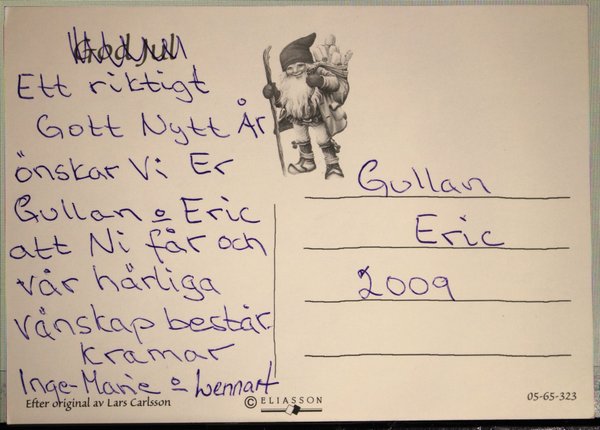 God Jul
Ett riktigt
Gott Nytt År
önskar Vi Er
Gullan o Eric
att Ni får och
vår härliga
vänskap består
kramar
Inge-Marie o Lennart
Efter original av Lars Carlsson
Gullan
Eric
2009
© ELIASSON
05-65-323